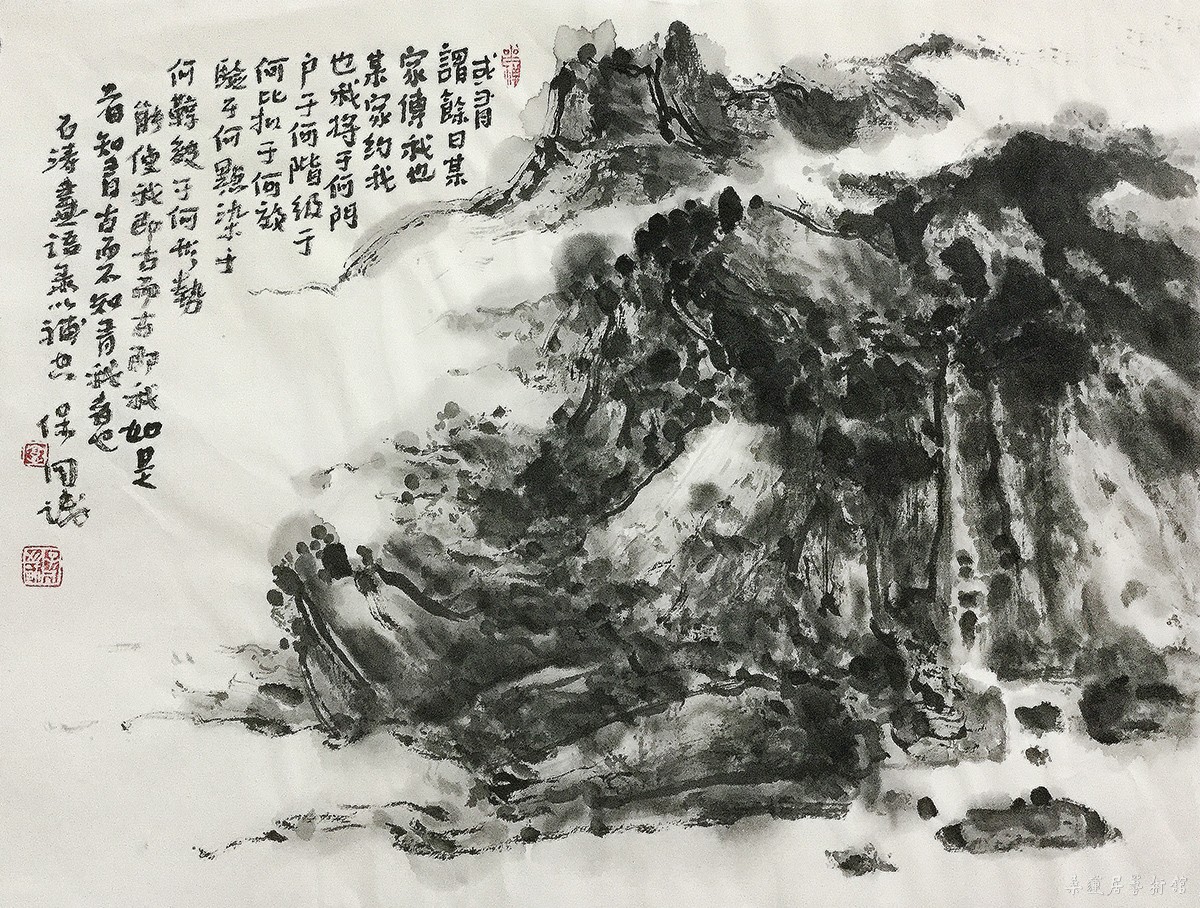 或有
謂餘曰某
家傳我也
某家约我
也我将于何門
户于何階级于
何比拟于何效
驗于何點染于
何鞟皴于何形勢
能使我即古而古即我如是
者知有古而不知有我者也
石涛畫語录以補空 保国
居藝術馆